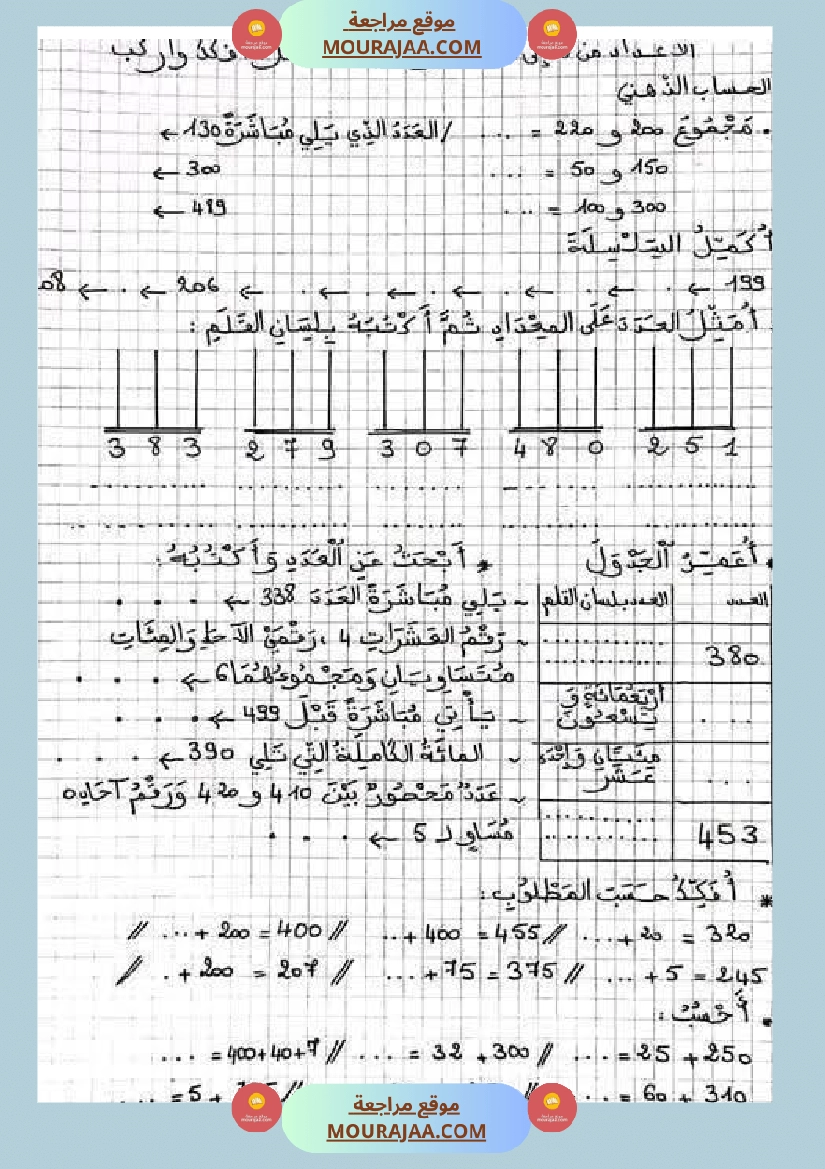 موقع مراجعة
MOURAJAA.COM
الحساب الذهني
• مَجْمُوعُ 200 و 220 = .... / العَدَدُ الذِي يَلِي مُبَاشَرَةً 130 ←
150 و 50 = ... 300 ←
300 و 100 = .... 489 ←
أُكَمِّلُ السِّلْسِلَةَ
199 ← . ← . ← . ← . ← . ← . ← 206 ← . ← 08
. أُمَثِّلُ العَدَدَ عَلَى المِعْدَادِ ثُمَّ أَكْتُبُهُ بِلِسَانِ القَلَمِ :
3 8 3 2 7 9 3 0 7 4 8 0 2 5 1
• أُعَمِّرُ الْجَدْوَلَ
العدد العدد بلسان القلم
380 ............
... أرْبَعُمَائَةٍ وَ تِسْعُونَ
... مِئَتَانِ وَإِحْدَى عَشَرَ
453 ............
• أَبْحَثُ عَنِ الْعَدَدِ وَأَكْتُبُهُ :
- يَلِي مُبَاشَرَةً العَدَدَ 338 ← . . . .
- رَقْمُ العَشَرَاتِ 4 ، رَقْمَيْ الآحَادِ وَالمِئَاتِ
مُتَسَاوِيَانِ وَمَجْمُوعُهُمَا 6 ← . . . .
- يَأْتِي مُبَاشَرَةً قَبْلَ 499 ← . . . .
- المائَةُ الكَامِلَةُ التِي تَلِي 390 ← . . . .
- عَدَدٌ مَحْصُورٌ بَيْنَ 410 و 420 وَرَقْمُ آحَادِه
مُسَاوٍ لـ 5 ← . . . .
* أُفَكِّكُ حَسَبَ المَطْلُوبِ :
320 = 20 + ... // 455 = 400 + ... // 400 = 200 + ... //
245 = 5 + ... // 375 = 75 + ... // 207 = 200 + . //
• أَحْسُبُ :
250 + 25 = .... // 300 + 32 = .... // 7+40+400 = ....
310 + 60 = ....
موقع مراجعة
MOURAJAA.COM